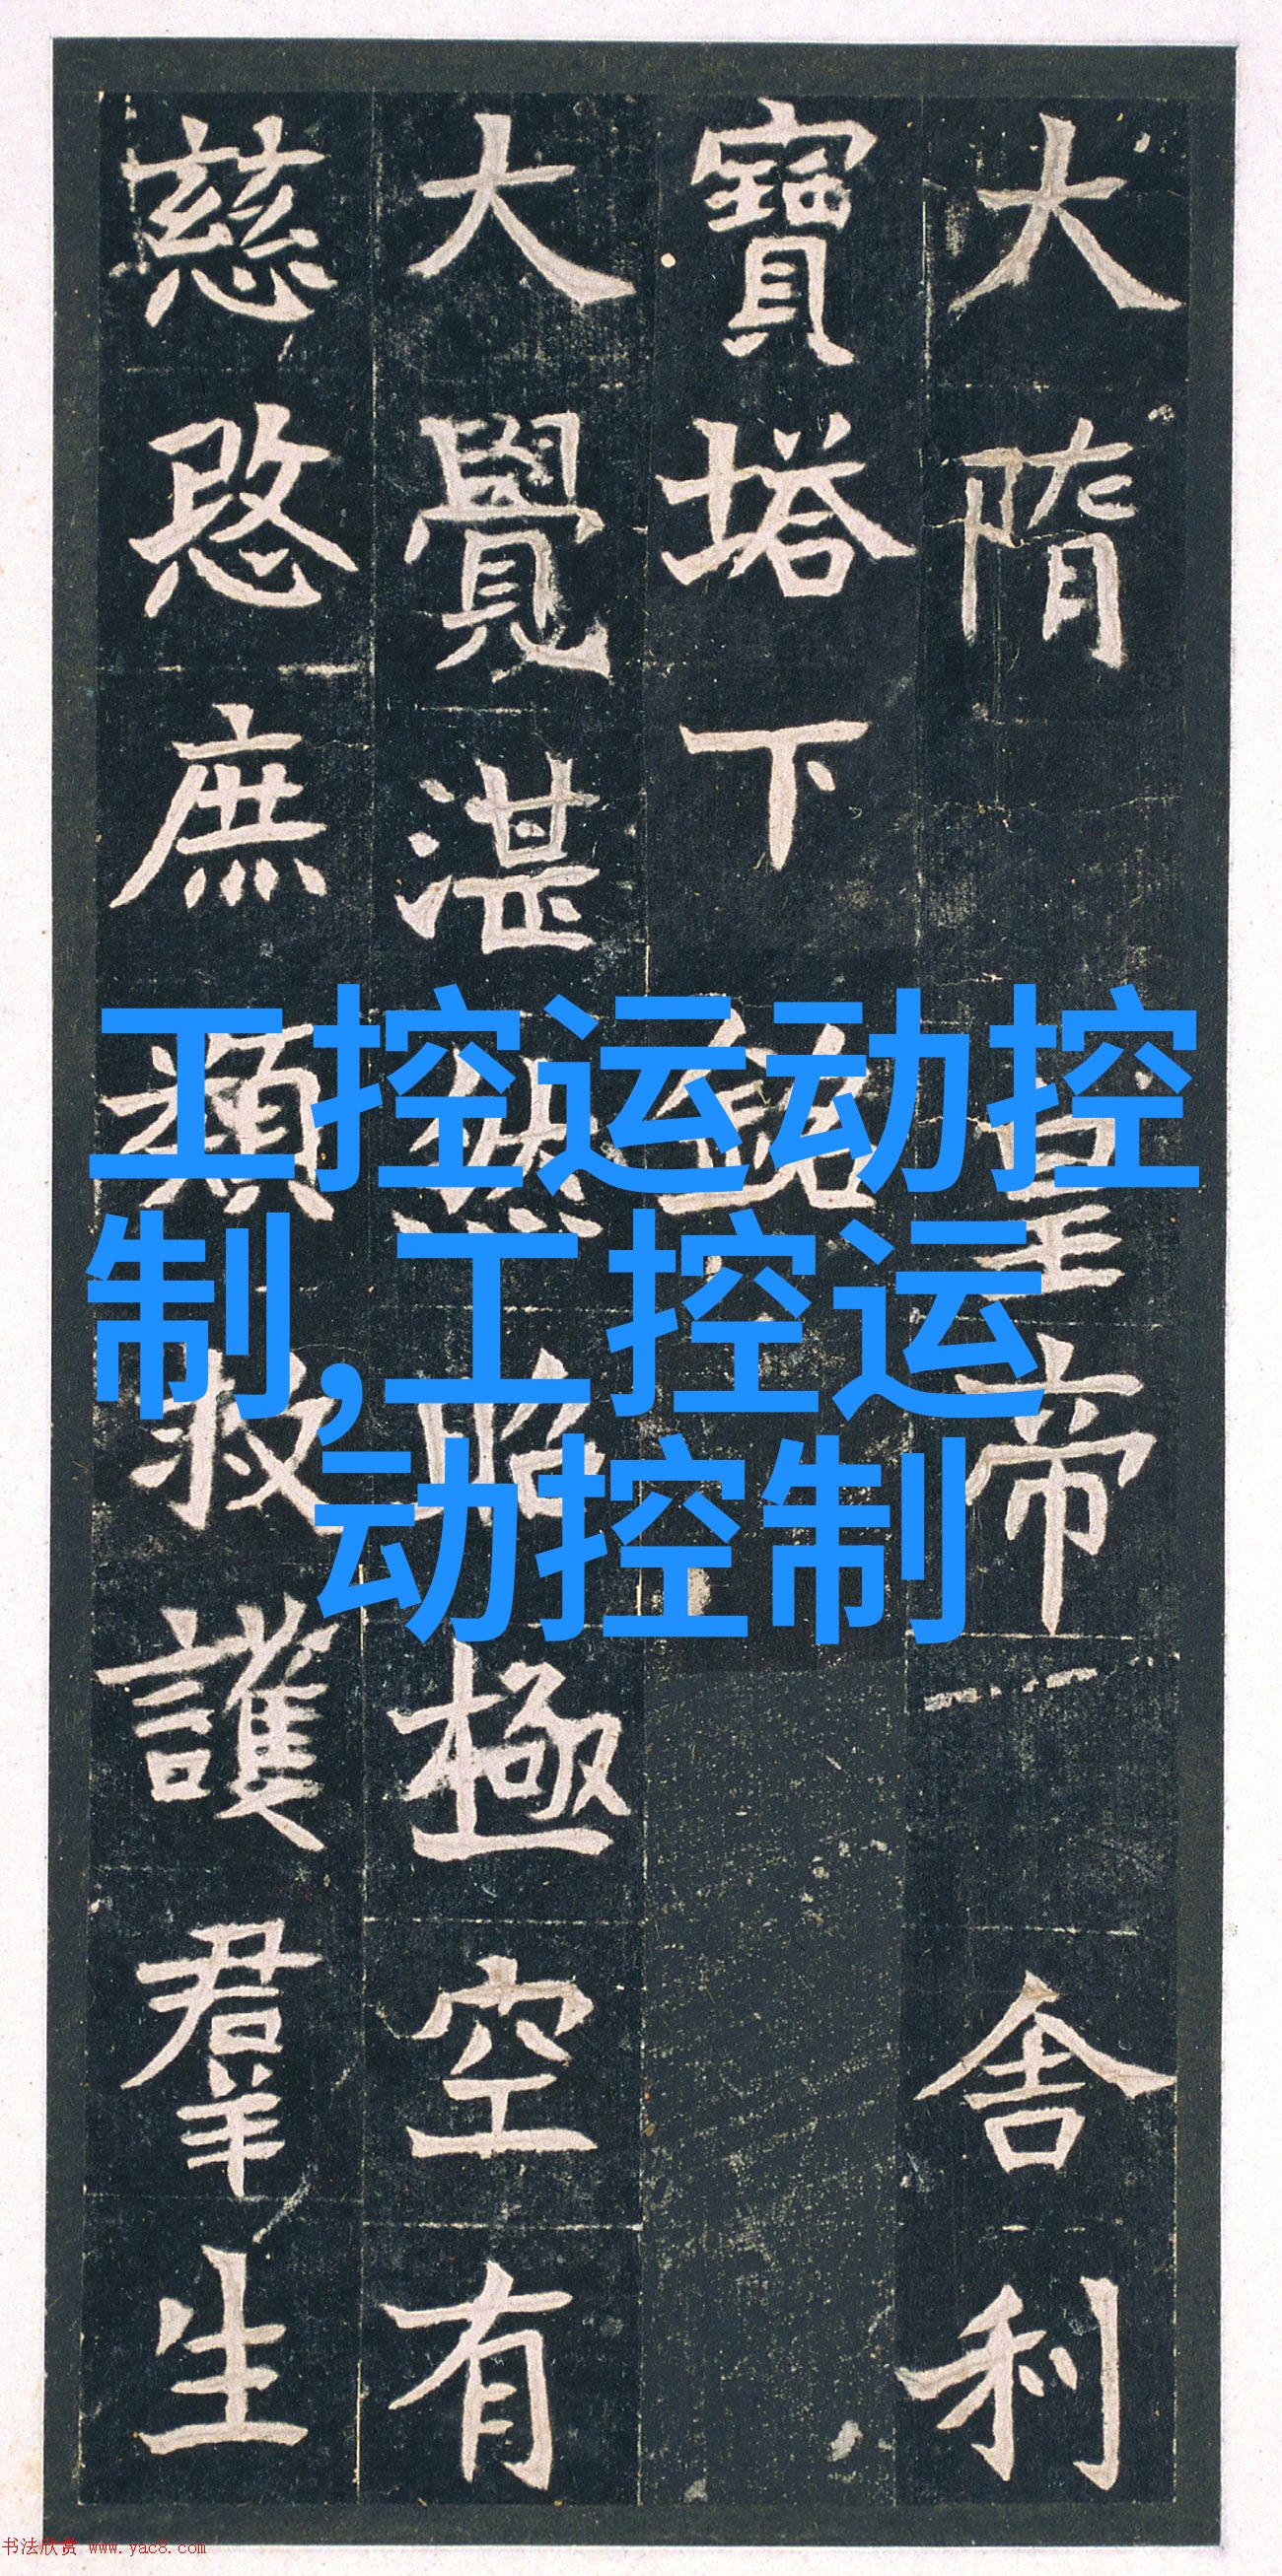 大隋皇帝舍利
寶塔下銘
大覺湛然昭極空有
慈愍庶類救護羣生
工控运动控
制,工控运
动控制
书法欣赏 www.yac8.com